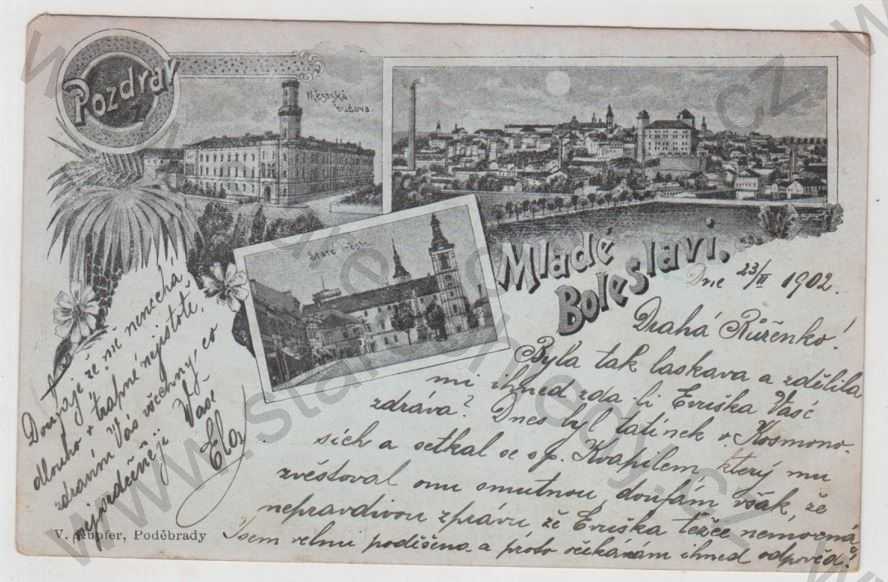 Pozdrav
z
Městská
budova.
Staré město
Mladé
Boleslavi.
Dne 23/III 1902.
Drahá Růženko!
Byla tak laskava a zdělila
mi ihned zda li Evuška Vaše
zdráva? Dnes byl tatínek v Kosmono-
sích a setkal se s p. Kvapilem, který mu
zvěstoval onu smutnou, doufám však, že
nepravdivou zprávu, že Evuška těžce nemocná.
Jsem velmi poděšena a proto očekávám ihned odpověď!
Doufaje že mě nenechá
dlouho v trapné nejistotě,
zdravím Vás všechny co
nejsrdečněji Vaše
Ela
V. Kupfer, Poděbrady